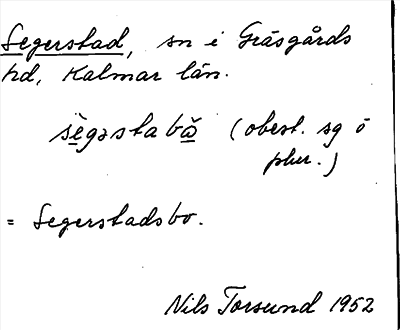 Segerstad, sn i Gräsgårds
hd, Kalmar län.
sègəstabǎ (obest. sg ö
plur.)
= Segerstadsbo.
Nils Torsund 1952